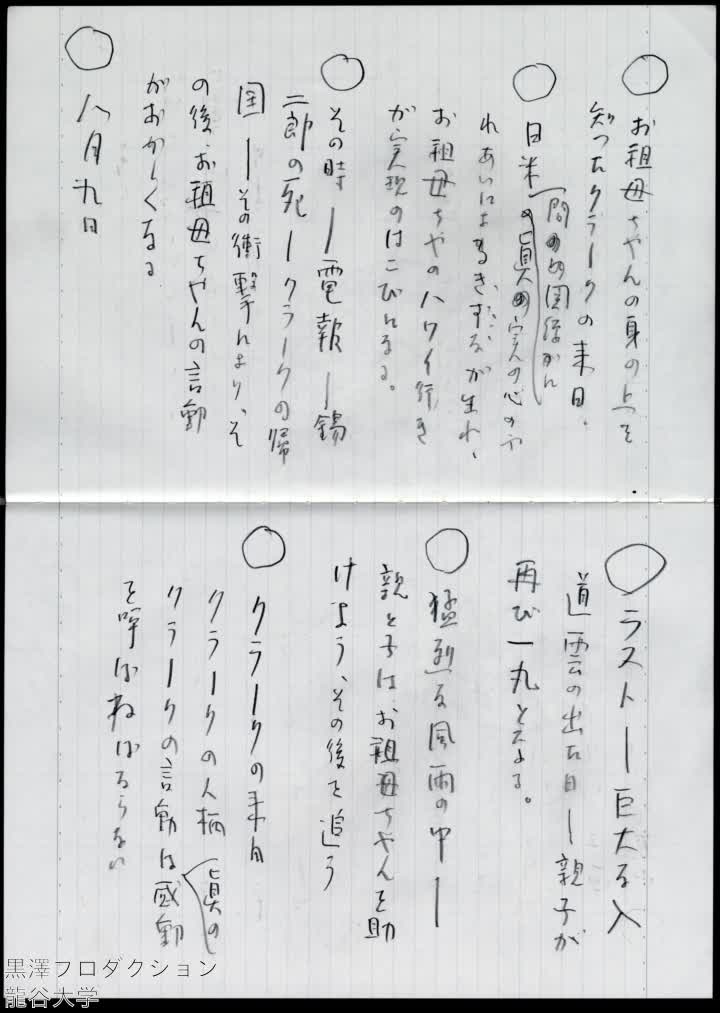 ○ お祖母ちやんの身の上を
知つたクラークの来日、
日米間の
○ 日米の眞の心のふ
れあいによるきずなが生れ、
お祖母ちやのハワイ行き
が実現のはこびになる。
○ その時ー電報ー錫
二郎の死ークラークの帰
国ーその衝撃により、そ
の後、お祖母ちやんの言動
がおかしくなる
○ 八月九日
○ ラストー巨大な入
道雲の出た日ー親子が
再び一丸となる。
○ 猛烈な風雨の中ー
親と子はお祖母ちやんを助
けよう、その後を追う
○ クラークの来日
クラークの人柄
眞の
クラークの言動は感動
を呼ばねばならない
黒澤プロダクション
龍谷大学